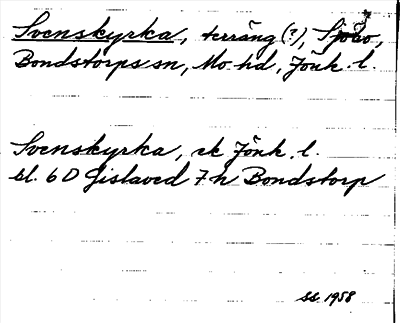 Svenskyrka, terräng (?), Sjöbo,
Bondstorps sn, Mo hd, Jönk. l.
Svenskyrka, ek Jönk. l.
bl. 6 D Gislaved 7 h Bondstorp
SS. 1958